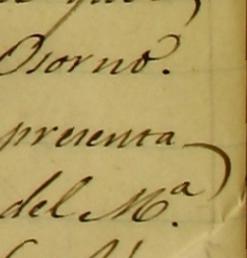 Osorno.
presenta
del M.ª